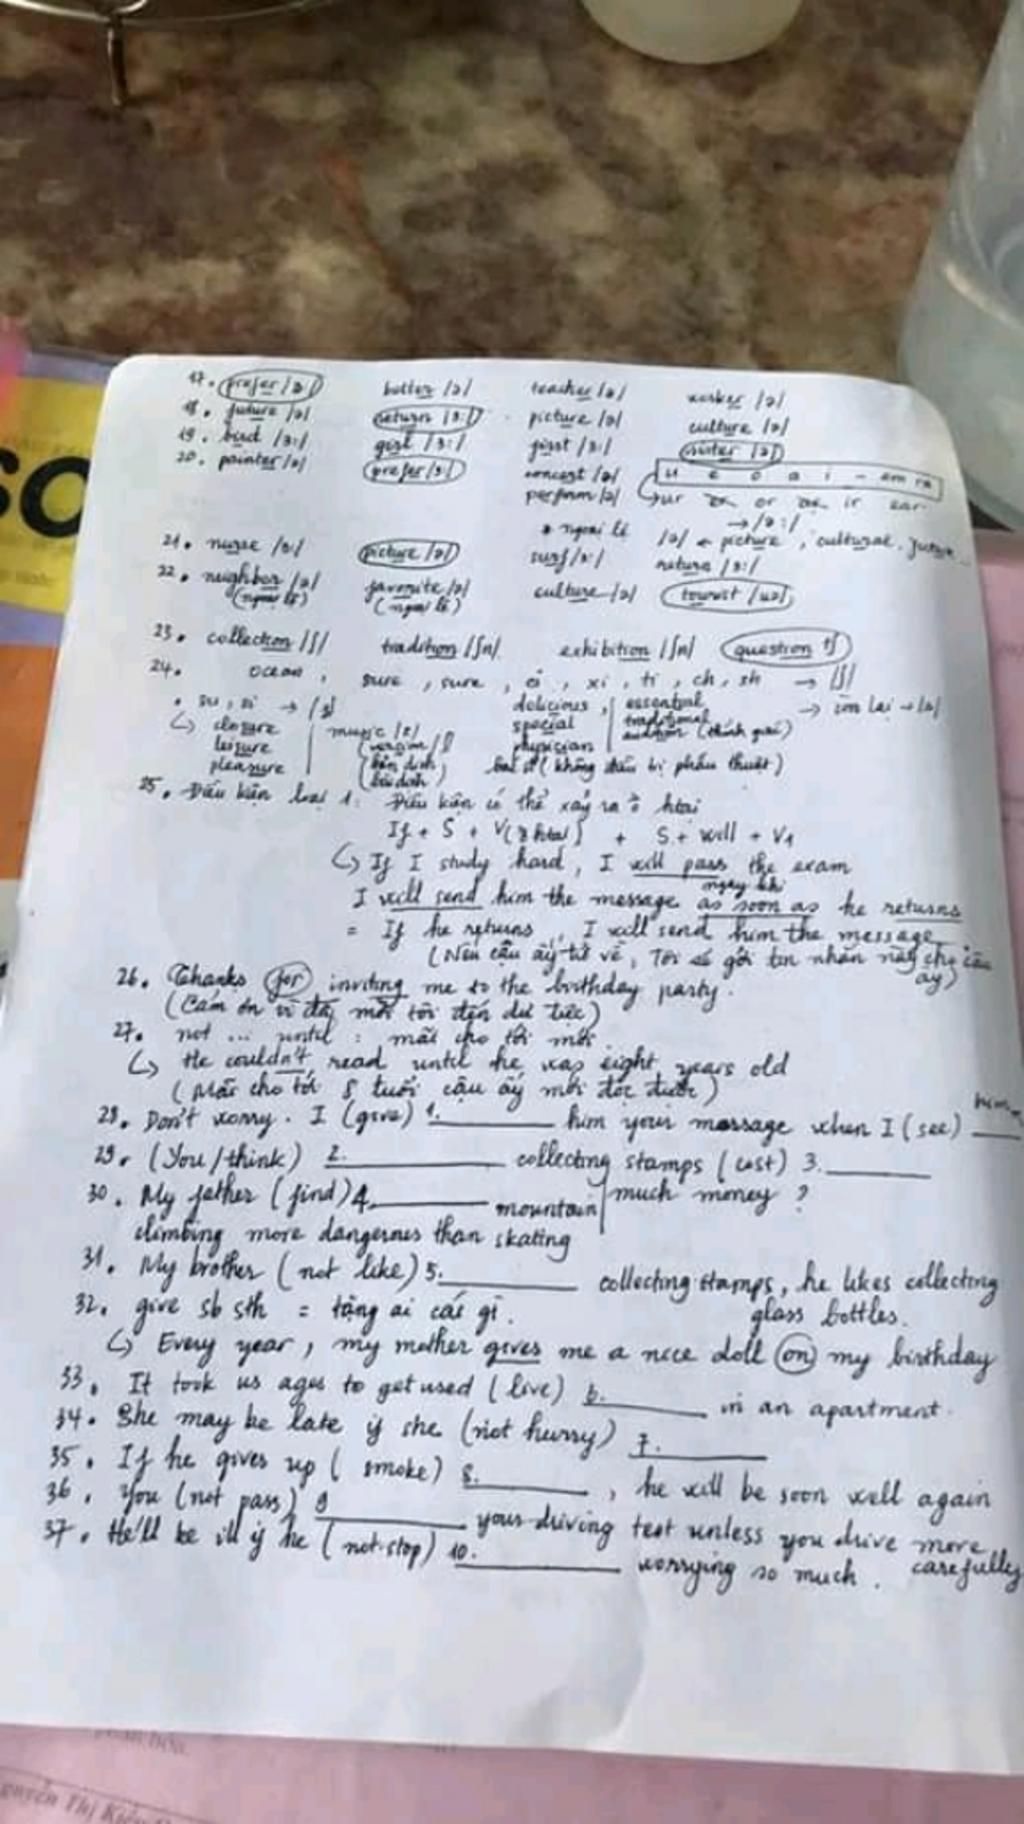 17. prefer /ə/ butter /ə/ teacher /ə/ worker /ə/
18. future /ə/ return /ɜ:/ picture /ə/ culture /ə/
19. bird /ɜ:/ girl /ɜ:/ first /ɜ:/ sister /ə/
20. painter /ə/ prefer /ɜ:/ concert /ə/
perform /ə/
u e o a i - âm ra
ur or ir ear
→ /ɜ:/
* ngoại lệ /ə/ ← picture, cultural, future
21. nurse /ɜ:/ picture /ə/ surf /ɜ:/ return /ɜ:/
22. neighbor /ə/ favorite /ə/ culture /ə/ tourist /ʊə/
(ngoại lệ) (ngoại lệ)
23. collection /ʃ/ tradition /ʃn/ exhibition /ʃn/ question
24. ocean, sure, sure, ci, xi, ti, ch, sh → /ʃ/
su, si → /ʒ/ delicious, essential → còn lại → /s/
closure music /z/ special traditional
leisure version physician audition (thính giả)
pleasure
bất ơ (không dấu bị phẩu thuật)
25. Điều kiện loại 1: Điều kiện có thể xảy ra ở htại
If + S + V(s htại) + S + will + V1
If I study hard, I will pass the exam
ngay khi
I will send him the message as soon as he returns
= If he returns, I will send him the message
(Nếu cậu ấy trở về, Tôi sẽ gởi tin nhắn này cho cậu ấy)
26. Thanks for inviting me to the birthday party.
(Cảm ơn vì đã mời tôi đến dự tiệc)
27. not ... until : mãi cho tới mới
He couldn't read until he was eight years old
(Mãi cho tới 8 tuổi cậu ấy mới đọc được)
28. Don't worry. I (give) 1. him your message when I (see) him
29. (You/think) 2. collecting stamps (cost) 3.
much money ?
30. My father (find) 4. mountain
climbing more dangerous than skating
31. My brother (not like) 5. collecting stamps, he likes collecting
glass bottles.
32. give sb sth = tặng ai cái gì.
Every year, my mother gives me a nice doll on my birthday
33. It took us ages to get used (live) 6. in an apartment.
34. She may be late if she (not hurry) 7.
35. If he gives up (smoke) 8. , he will be soon well again
36. You (not pass) 9 your driving test unless you drive more
carefully
37. He'll be ill if he (not stop) 10. worrying so much.